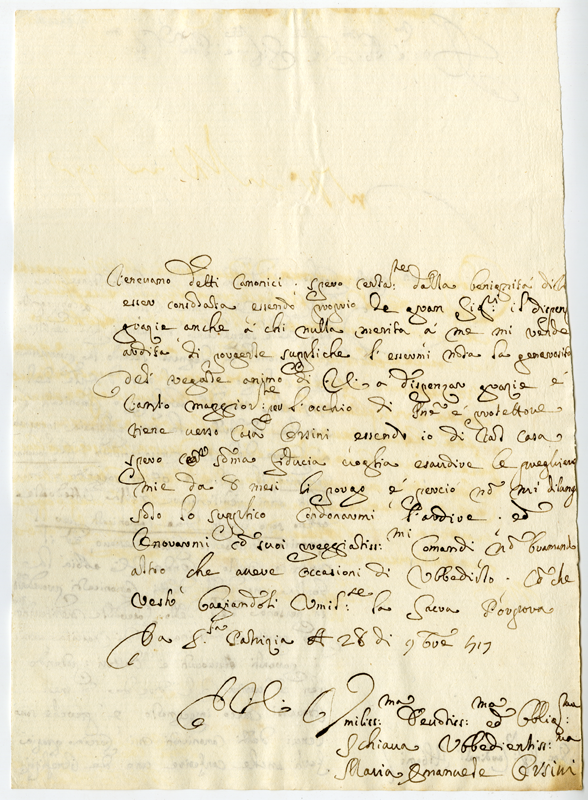 tenevano detti Canonici. spero certa:te dalla benignità di
esser consolata essendo proprio de gran Sig:ri il dispen
grazie anche à chi nulla merita à me mi rende
ardita di porgerle suppliche l'essermi nota la generosità
del regale animo di a dispenzar grazie è
tanto maggior:te per l'occhio di Pne e protettore
tiene verso Casa Orsini essendo io di tal casa
spero soma fiducia voglia esaudire le preghiere
mie da 8 mesi li porgo è percio nō mi dilungo
solo lo supplico Condonarmi l'ardire. ed
Onorarmi suoi preggiatiss:mi Comandi nō bramando
altro che avere Occasioni di Ubbedirlo. che
resto Bagiandoli Umil:te la Sacra Porpora
Da S:ta Patrizia 28 di 9bre 717
Umiliss:ma Deuotiss:ma ed Obligat:ma
Schiava Ubbedientiss:ma
Maria Emanuele Orsini